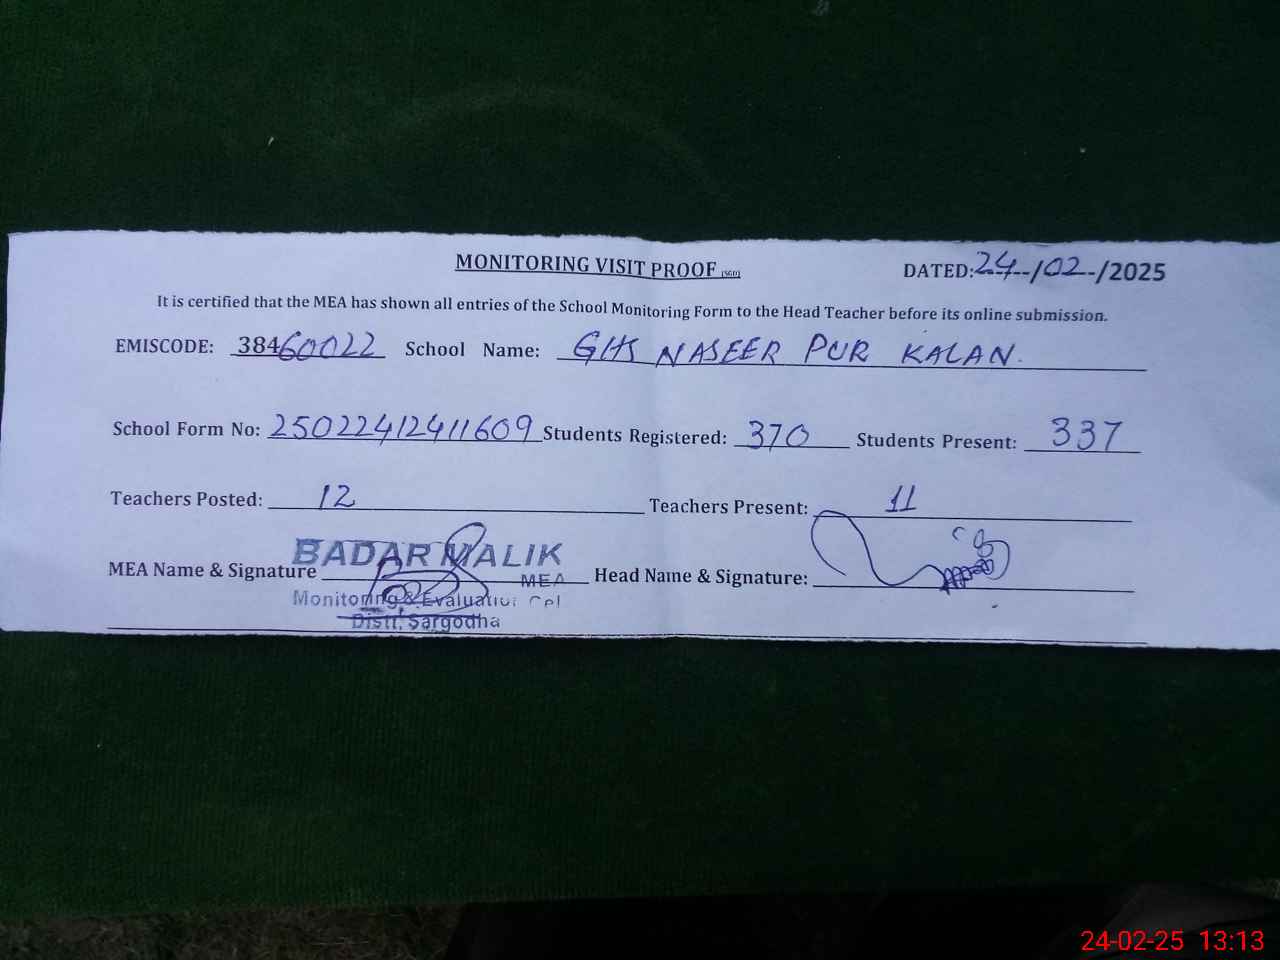 MONITORING VISIT PROOF (SGD) DATED:24--/02--/2025
It is certified that the MEA has shown all entries of the School Monitoring Form to the Head Teacher before its online submission.
EMISCODE: 38460022 School Name: GHS NASEER PUR KALAN.
School Form No: 25022412411609 Students Registered: 370 Students Present: 337
Teachers Posted: 12 Teachers Present: 11
BADAR MALIK
MEA Name & Signature Head Name & Signature:
MEA
Monitoring & Evaluation Cel
Distt. Sargodha
24-02-25 13:13